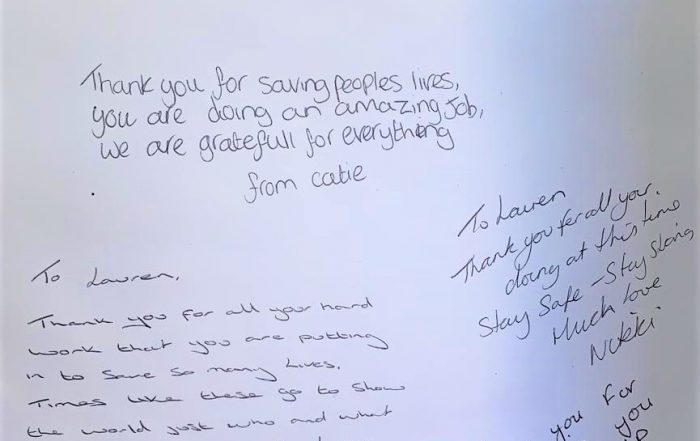 Thank you for saving peoples lives,
you are doing an amazing job,
we are gratefull for everything
from catie
To Lauren
Thank you for all your
doing at this time
Stay Safe - Stay Strong
Much love
Nikki
To Lauren,
Thank you for all your hard
work that you are putting
in to save so many lives.
Times like these go to show
the world just who and what
you For
you